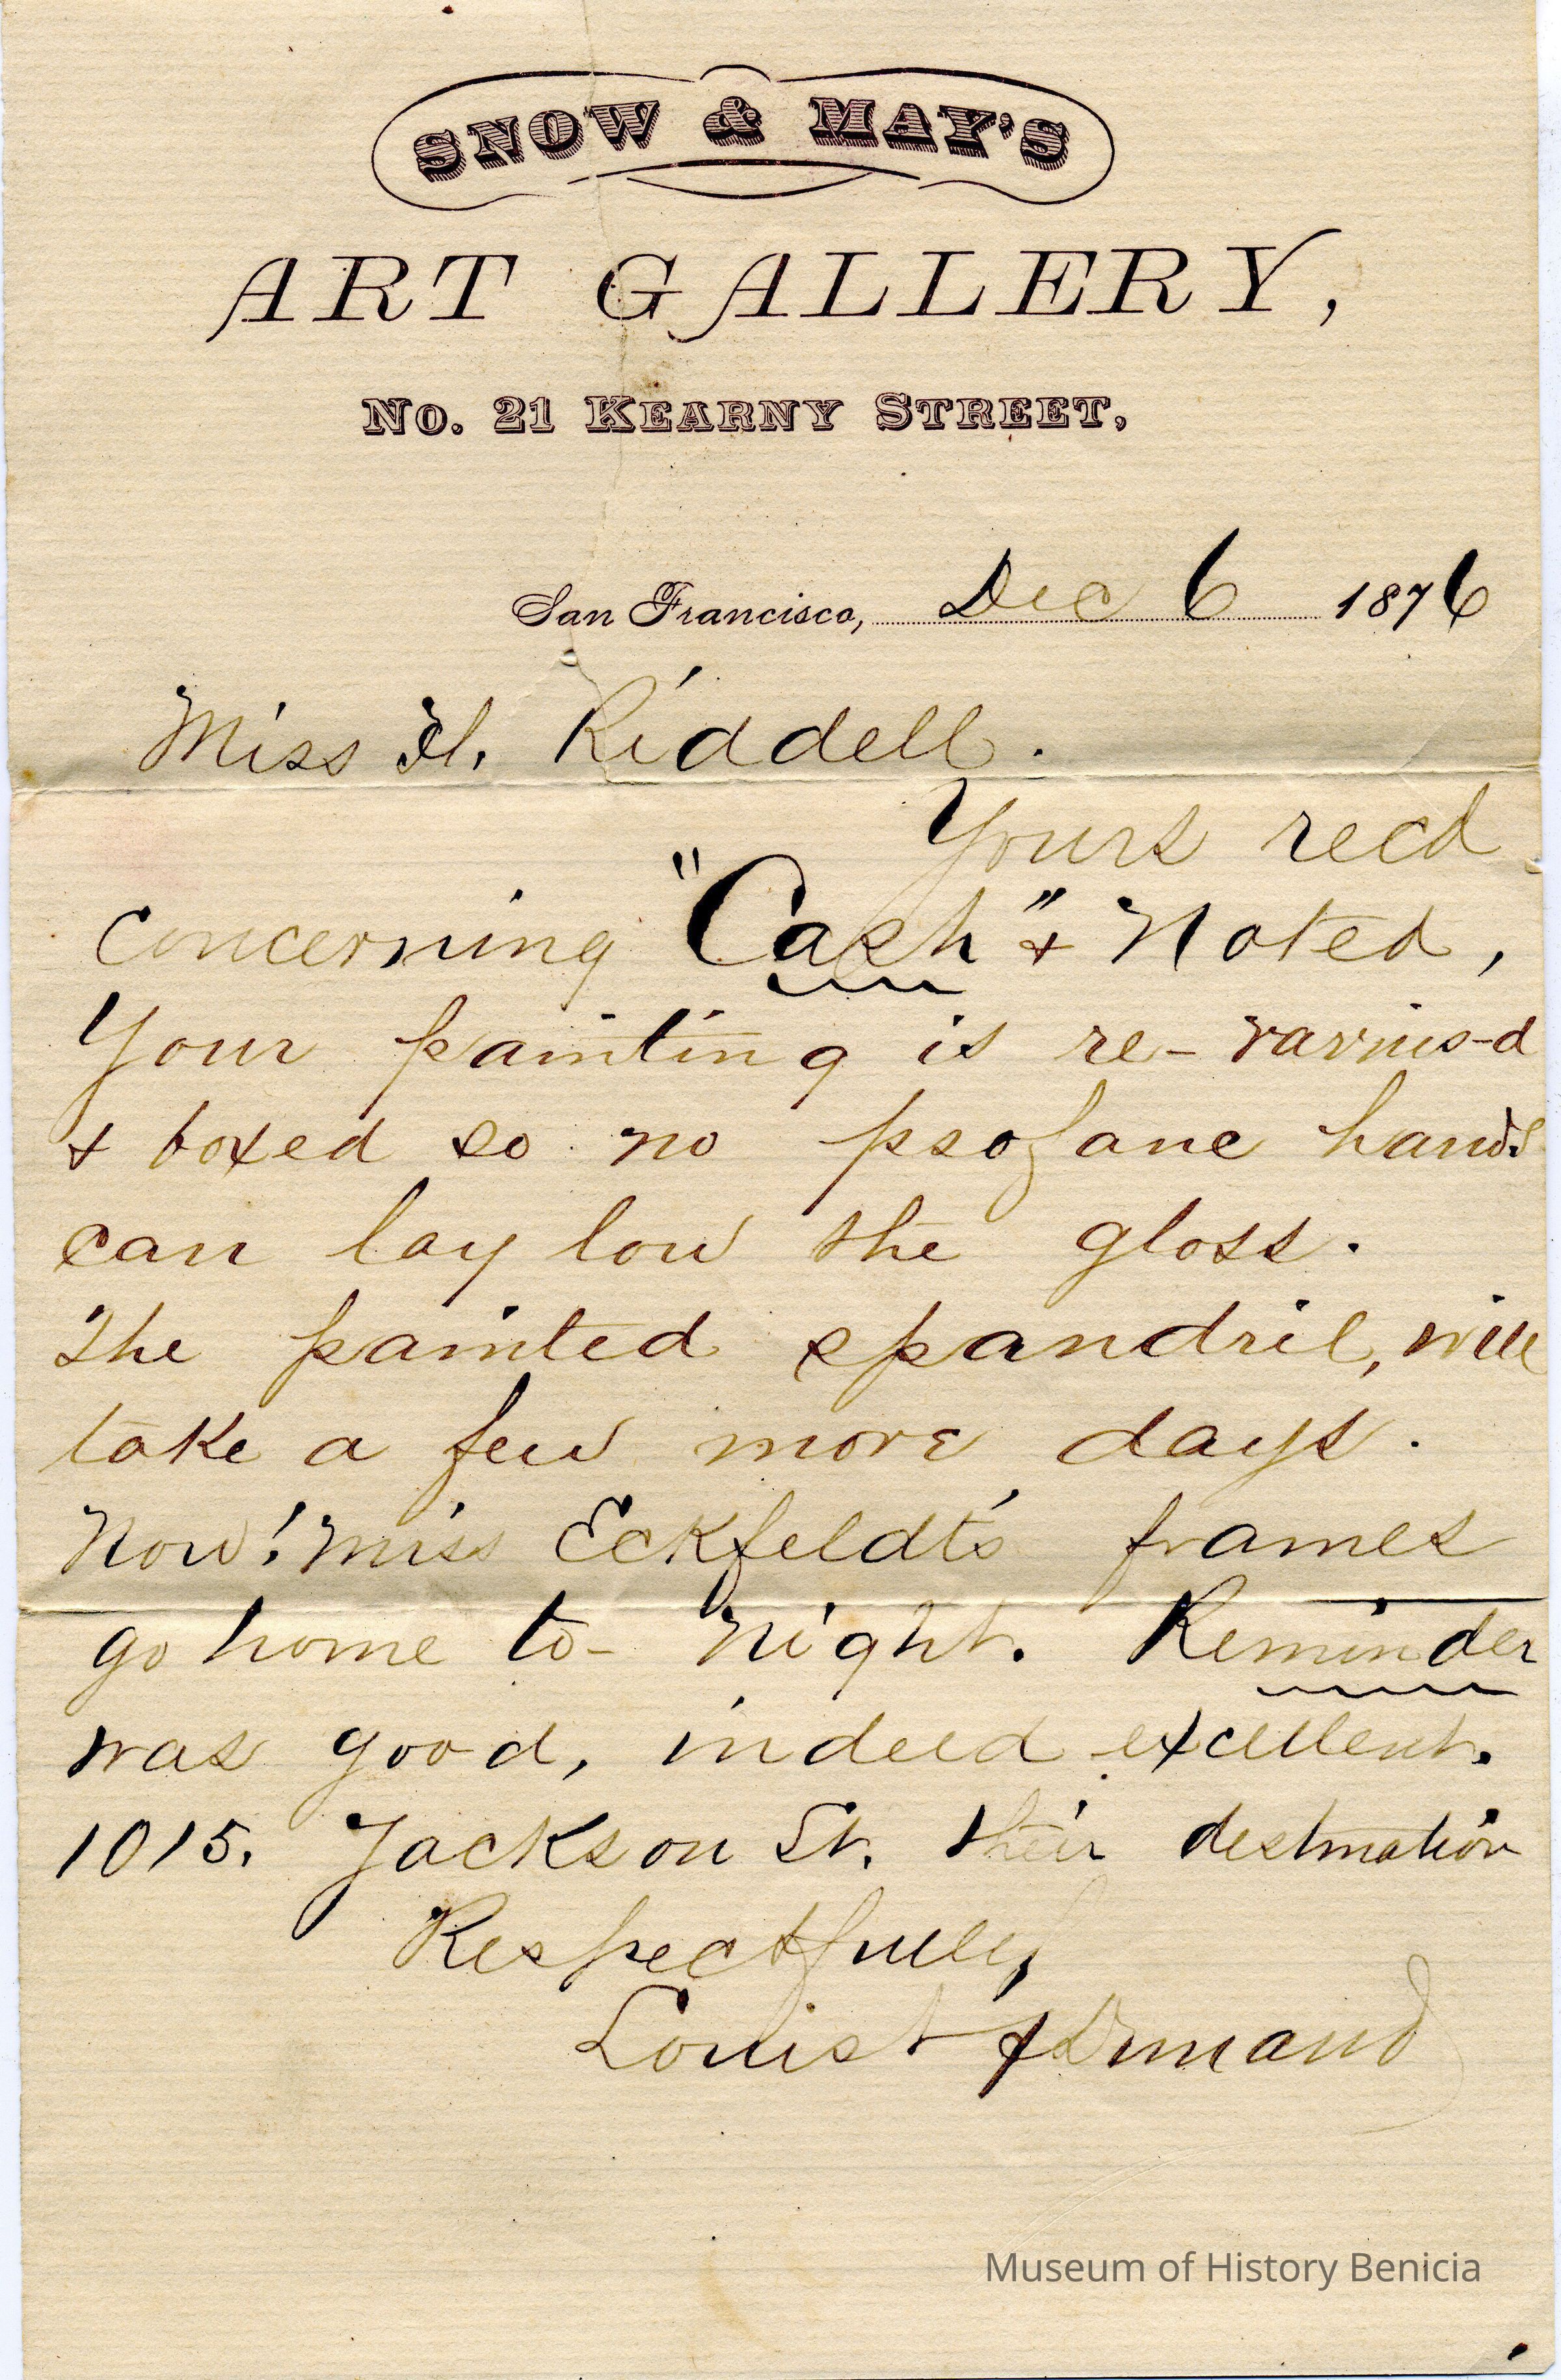 SNOW & MAY'S
ART GALLERY,
No. 21 KEARNY STREET,
San Francisco, Dec 6 1876
Miss H. Riddell.
Yours recd
concerning "Cash" & Noted,
Your painting is re-varnis-d
& boxed so no profane hands
can lay low the gloss.
The painted spandril, will
take a few more days.
Now! Miss Eckfeldt's frames
go home to-night. Reminder
was good, indeed excellent.
1015. Jackson St. their destination
Respectfully
Louis
Museum of History Benicia